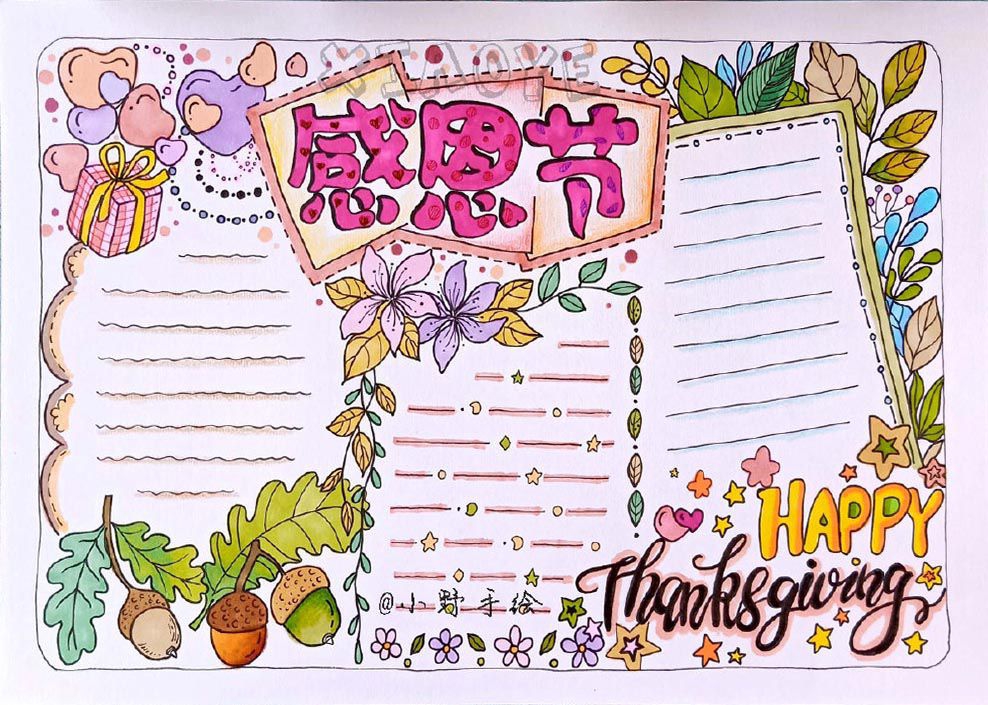 XIAOYE
感恩节
HAPPY
Thanksgiving
@小野手绘